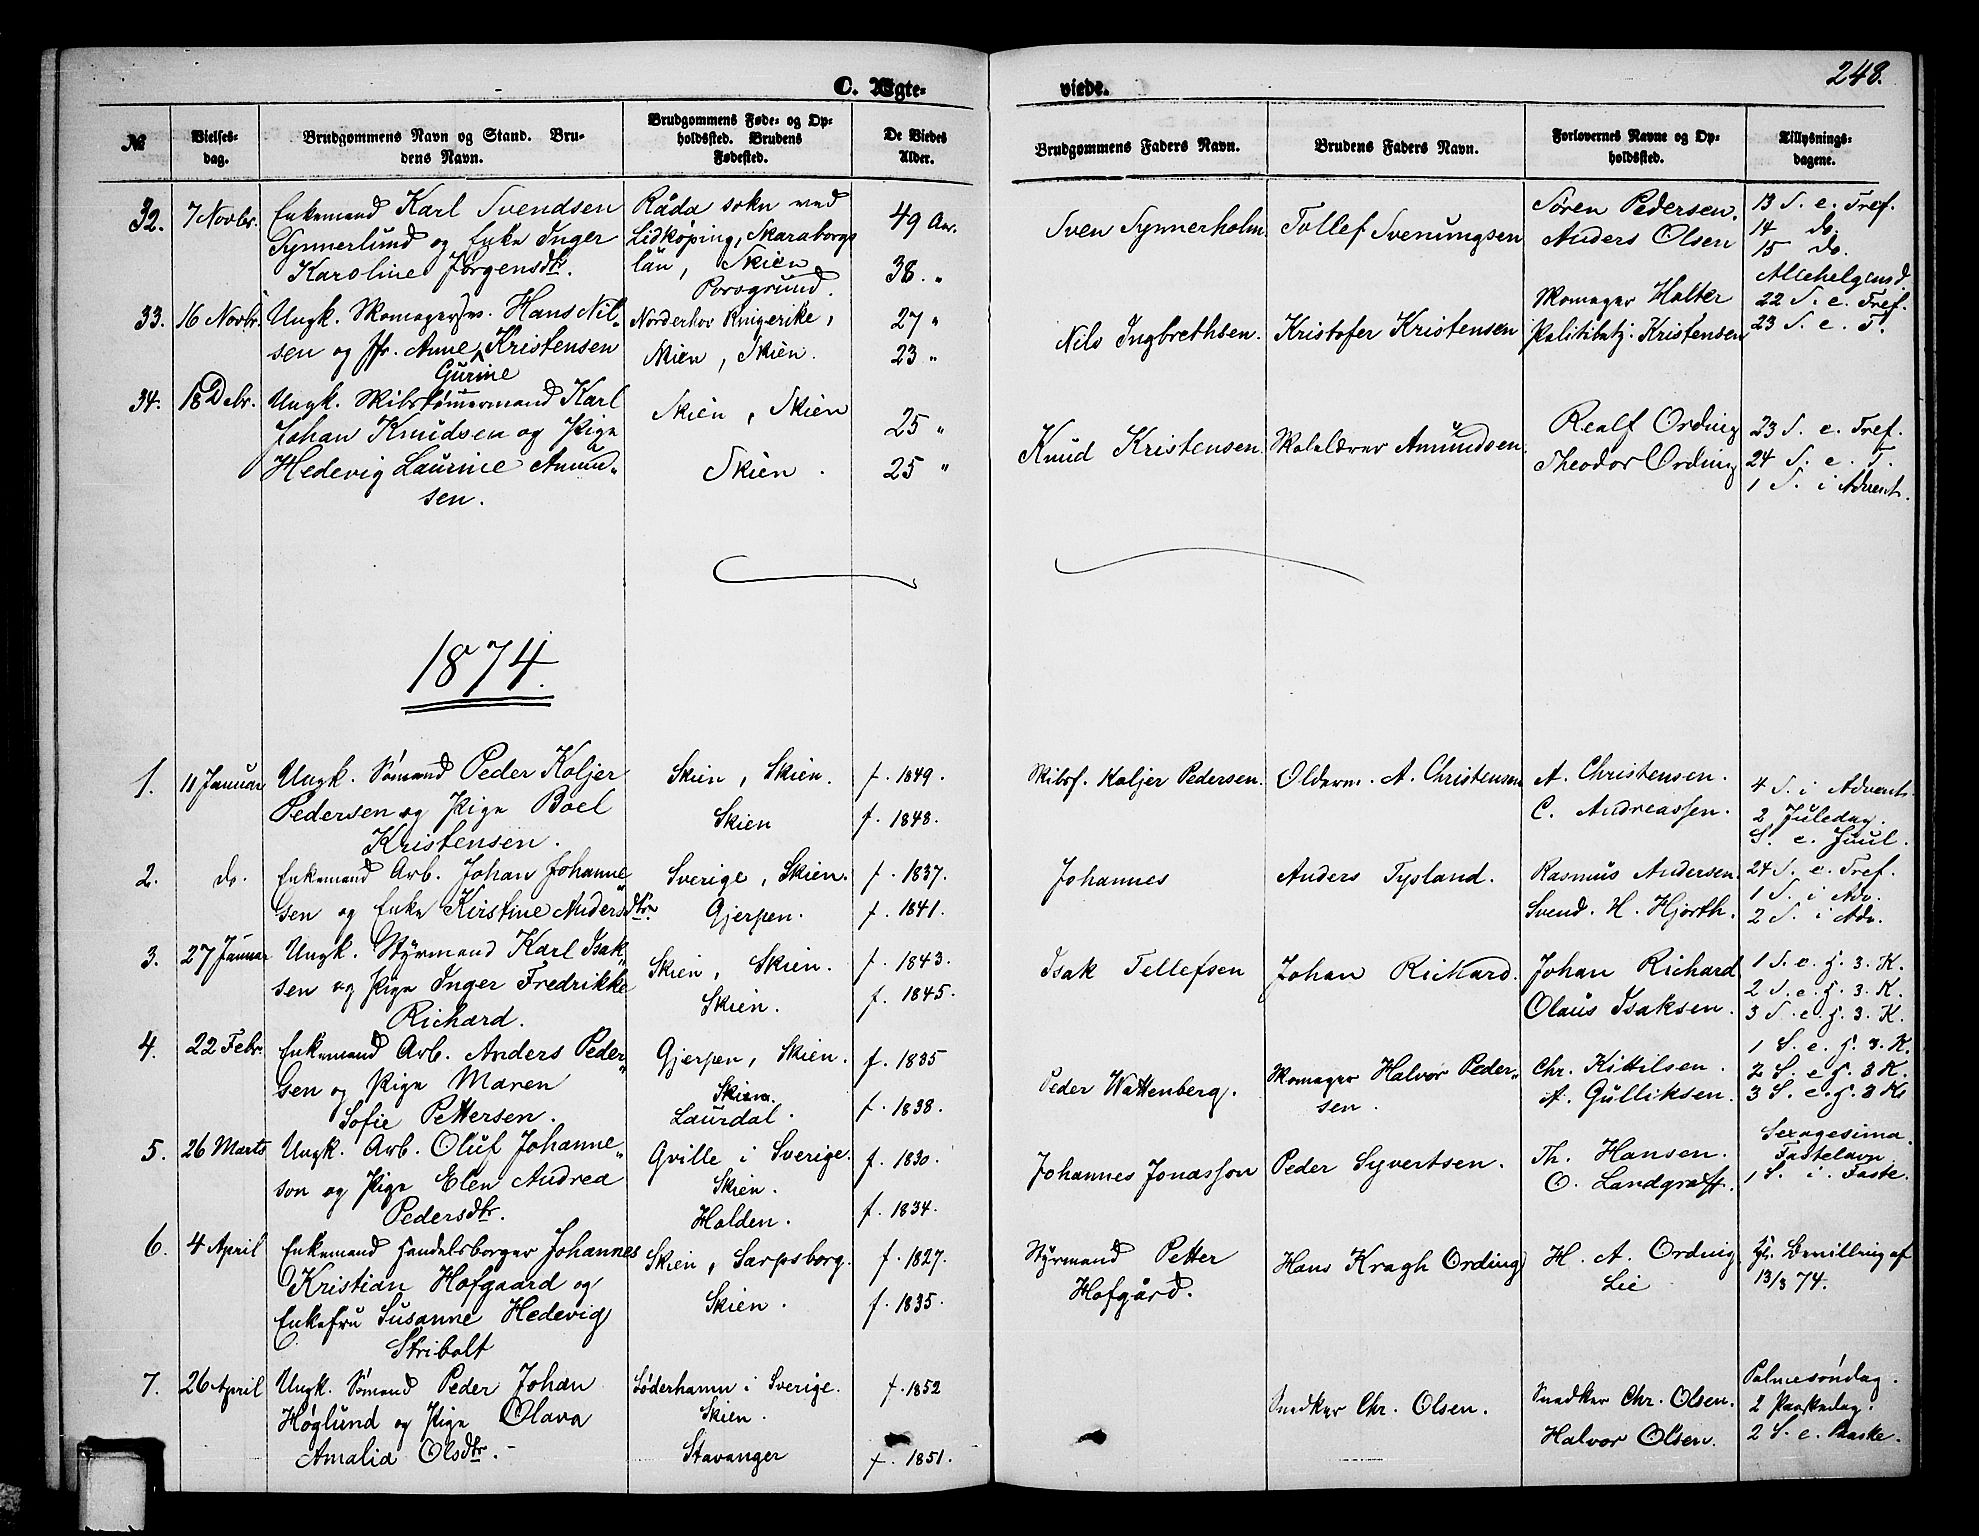 248.
C. Ægte-
viede.
№
Vielses-
dag.
Brudgommens Navn og Stand. Bru-
dens Navn.
Brudgommens Føde- og Op-
holdssted. Brudens
Fødested.
De Viedes
Alder.
Brudgommens Faders Navn.
Brudens Faders Navn.
Forlovernes Navne og Op-
holdssted.
Tillysnings-
dagene.
32.
7 Novbr.
Enkemand Karl Svendsen
Synnerlund og Enke Inger
Karoline Jørgensdtr.
Råda sokn ved
Lidköping, Skaraborgs
län, Skien
Porsgrund.
49 Aar.
38. "
Sven Synnerholm
Tollef Svenungsen
Søren Pedersen.
Anders Olsen
13 S. e. Tref.
14 do.
15 do.
33.
16 Novbr.
Ungk. Skomagersv. Hans Nil-
sen og Pr. Anne Kristensen
Gurine
Norderhov Ringerike,
Skien, Skien.
27 "
23 "
Nils Ingbrethsen.
Kristofer Kristensen
Skomager Halter
Politibetj. Kristensen
Allehelgensd.
22 S. e. Tref.
23 S. e. T.
34.
18 Debr.
Ungk. Skibstømmermand Karl
Johan Knudsen og Pige
Hedevig Laurine Amund-
sen.
Skien, Skien
Skien.
25 "
25 "
Knud Kristensen
Skolelærer Amundsen
Realf Ording
Theodor Ording
23 S. e. Tref.
24 S. e. T.
1 S. i Advent.
1874.
1.
11 Januar
Ungk. Sømand Peder Koljer
Pedersen og Pige Boel
Kristensen.
Skien, Skien.
Skien
f. 1849.
f. 1848.
Skibsf. Koljer Pedersen.
Olderm. A. Christensen
A. Christensen.
C. Andreassen.
4 S. i Advent.
2 Juledag.
S. e. Juul.
2.
do.
Enkemand Arb. Johan Johanne-
sen og Enke Kirstine Andersdtr.
Sverige, Skien.
Gjerpen.
f. 1837.
f. 1841.
Johannes
Anders Tysland.
Rasmus Andersen.
Svend. H. Hjorth.
24 S. e. Tref.
1 S. i Adv.
2 S. i Adv.
3.
27 Januar
Ungk. Styrmand Karl Isak-
sen og Pige Inger Fredrikke
Richard.
Skien, Skien.
Skien.
f. 1843.
f. 1845.
Isak Tellefsen
Johan Richard.
Johan Richard
Olaus Isaksen.
1 S. e. h. 3. K.
2 S. e. h. 3. K.
3 S. e. h. 3. K.
4.
22 Febr.
Enkemand Arb. Anders Peder-
sen og Pige Maren
Sofie Pettersen.
Gjerpen, Skien.
Skien.
Laurdal.
f. 1835
f. 1838.
Peder Wattenberg.
Skomager Halvor Peder-
sen.
Chr. Kittilsen.
A. Gulliksen.
1 S. e. h. 3. K.
2 S. e. h. 3 K.
3 S. e. h. 3 K.
5.
26 Marts
Ungk. Arb. Oluf Johanne-
son og Pige Elen Andrea
Pedersdtr.
Qville i Sverige.
Skien.
Holden.
f. 1830.
f. 1834.
Johannes Jonasson
Peder Syvertsen.
Th. Hansen.
O. Landgraff.
Sexagesima.
Fastelavn
1 S. i. Faste.
6.
4 April
Enkemand Handelsborger Johannes
Kristian Hofgaard og
Enkefru Susanne Hedevig
Stribolt
Skien, Sarpsborg.
Skien.
f. 1827.
f. 1835.
Styrmand Petter
Hofgård.
Hans Kragh Ording
H. A. Ording
Lie
Kgl. Bevilling af
13/3 74.
7.
26 April
Ungk. Sømand Peder Johan
Høglund og Pige Olava
Amalia Olsdtr.
Söderhamn i Sverige.
Skien.
Stavanger
f. 1852
f. 1851.
Snedker Chr. Olsen.
Snedker Chr. Olsen.
Halvor Olsen.
Palmesøndag.
2 Paaskedag.
2 S. e. Paaske.